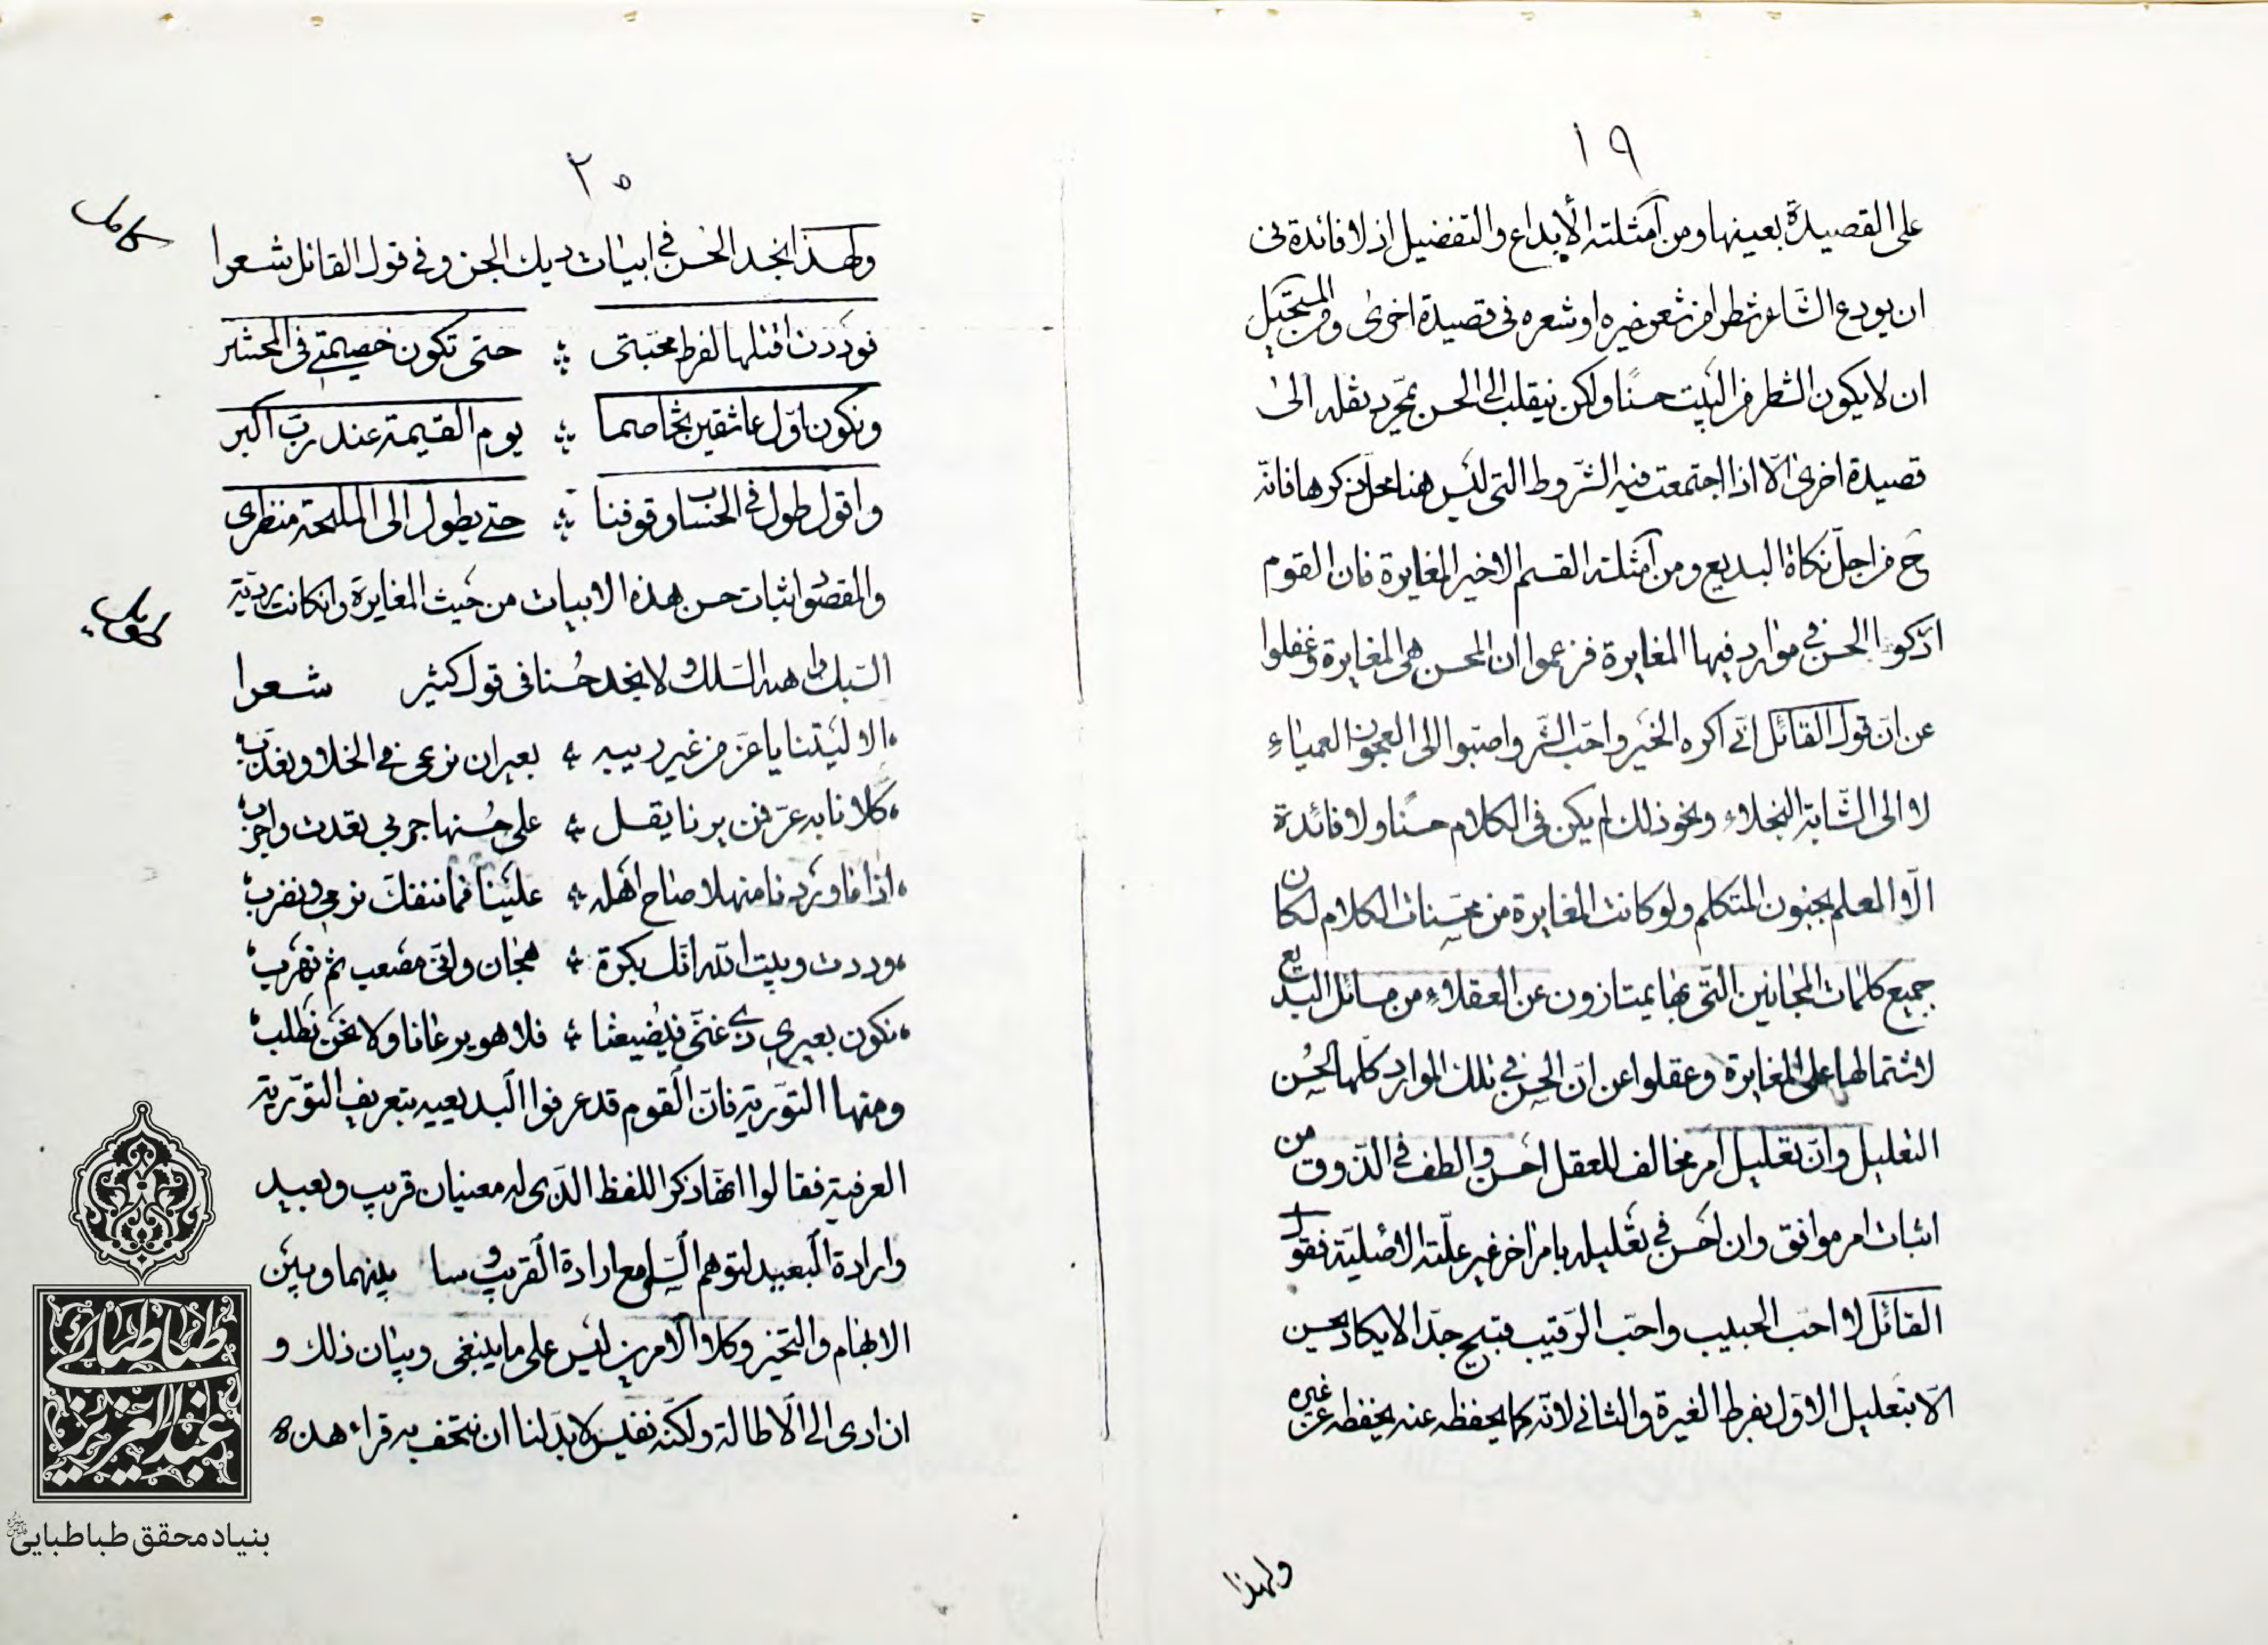 ١٩
على القصيدة بعينها ومن امثلته الأبداع والتفضيل اذ لا فائدة فى
ان يودع الشاعر شطرا من شعر غيره او شعره فى قصيدة اخرى ومن المستحيل
ان لا يكون الشطر فى البيت حسنًا ولكن ينقلب الى الحسن بمجرد نقله الى
قصيدة اخرى الّا اذا اجتمعت فيه الشروط التى ليس هنا محل ذكرها فانه
ح من اجلّ نكاة البديع ومن امثلته القسم الاخير المغايرة فان القوم
ادركوا الحسن فى موارد فيها المغايرة فزعموا ان المحسن هى المغايرة وغفلوا
عن ان قول القائل انّى اكره الخير واحب الشر واصبوا الى العجوز العمياء
لا الى الشابة النجلاء ونحو ذلك لم يكن فى الكلام حسنًا ولا فائدة
الّا المعلم بجنون المتكلم ولو كانت المغايرة من محسنات الكلام لكان
جميع كلمات المجانين التى بها يمتازون عن العقلاء من مسائل البديع
لاشتمالها على المغايرة وغفلوا عن ان الحسن فى تلك الموارد كلها لحُسن
التعليل وان تعليل امر مخالف للعقل احسن والطف فى الذوق من
اثبات امر موافق وان احسن فى تعليله بامر اخر غير علّته الاصليّة فقول
القائل لا احب الحبيب واحب الرقيب قبيح جدّا لا يكاد يحسن
الّا بتعليل الاوّل بفرط الغيرة والثانى لانّه كما يحفظه عنه يحفظه عن غيره
ولهذا
٢٠
ولهذا نجد الحسن فى ابيات ديك الجن وفى قول القائل شعرا
كامل
فوددت اقتلها لفرط محبتى ؞ حتى تكون خصيمتى فى المحشر
ونكون اوّل عاشقين تخاصما ؞ يوم القيمة عند ربّ اكبر
واقول طول فى الحساب وقوفنا ؞ حتى يطول الى المليحة منظرى
والمقصود اثبات حسن هذه الابيات من حيث المغايرة وان كانت رديّة
السبك واهية السلك ولا نجد حُسنا فى قول كثير شعرا
طويل
الا ليتنا يا عزّ من غير ريبه ؞ بعيران نرعى فى الخلا ونعذب
كلانا به عرّ فمن يرنا يقل ؞ على حُسنها جربى تعدت واجرب
اذا ما وردنا منهلا صاح اهله ؞ علينا فما ننفك نرمى ونضرب
وددت وبيت الله انّك بكرة ؞ هجان وانّى مصعب ثم نهرب
نكون بعيرى ذى غنى فيُضيعنا ؞ فلا هو يرعانا ولا نحن نطلب
ومنها التوّرية فانّ القوم قد عرفوا البديعيه بتعريف التوّرية
العرفية فقالوا انها ذكر اللفظ الذى له معنيان قريب وبعيد
وارادة البعيد لتوهم السامع ارادة القريب و بينهما وبين
الابهام والتخير وكلا الامرين ليس على ما ينبغى وبيان ذلك و
ان ادى الى الاطالة ولكنه نفيس لا بد لنا ان نتحف به قراء هذه
طباطبائی
عبدالعزیز
بنیاد محقق طباطبایی